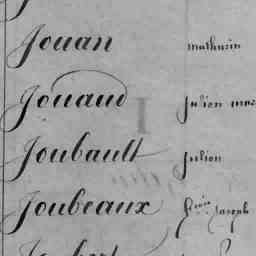 Jouan Mathurin
Jouaud Julien
Joubault Julien
Joubeaux Joseph